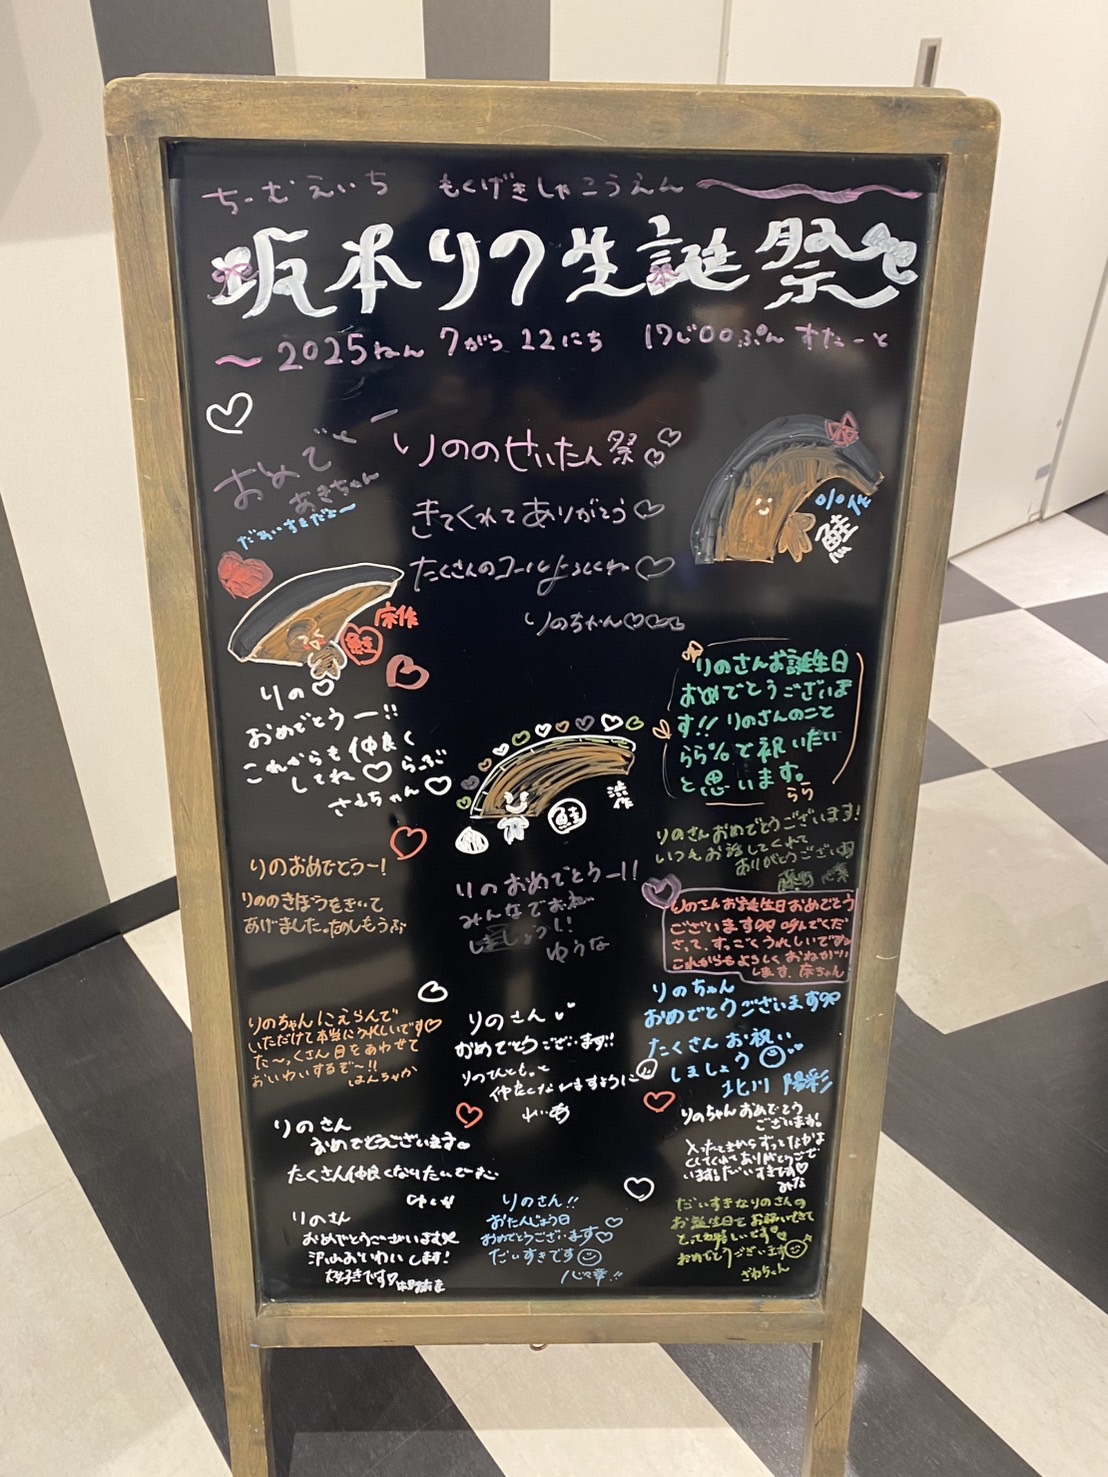 ちーむえいち もくげきしゃこうえん
坂本りの生誕祭
〜2025ねん 7がつ 22にち 17じ00ぷん すたーと
おめでとー
あきちゃん
だぁいすきだよ〜
りののせいたん祭♡♡
きてくれてありがとう♡
たくさんのコールよろしくね♡
りのちゃん♡♡♡
鮭
りの♡
おめでとうー!!
これからも仲良く
してね♡らぶ
さえちゃん♡
りのさんお誕生日
おめでとうございま
す!!りのさんのこと
らら%で祝いたい
と思います。
らら
鮭
りのさんおめでとうございます!
いつもお話してくれて
ありがとうございます
りのおめでとうー!
りののきぼうをきいて
あげました。たのしもうぶ
りのおめでとうー!!
みんなでお祝い
しましょう!!
ゆうな
りのさんお誕生日おめでとう
ございます 呼んでくだ
さって、すっごくうれしいです
これからもよろしくおねがい
します、
りのちゃん
おめでとうございます
たくさんお祝い
しましょう
北川 陽彩
りのちゃんにえらんで
いただけて本当にうれしいです♡
た〜っくさん目をあわせて
おいわいするぞ〜!!
はんちゃか
りのさん
おめでとうございます!!
りのてんともっと
仲良くなれますように
りのちゃんおめでとう
ございます。
入ったときからずっとなかよ
くしてくれてありがとうござ
います。だいすきです♡
りのさん
おめでとうございます。
たくさん仲良くなりたいでーす
りのさん
おめでとうございます
沢山おいわいします!
大好きです♡
りのさん!!
おたんじょう日
おめでとうございます♡
だいすきです
心々華!!
だいすきなりのさんの
お誕生日をお祝いできて
とっても嬉しいです
おめでとうございます
ざわちゃん